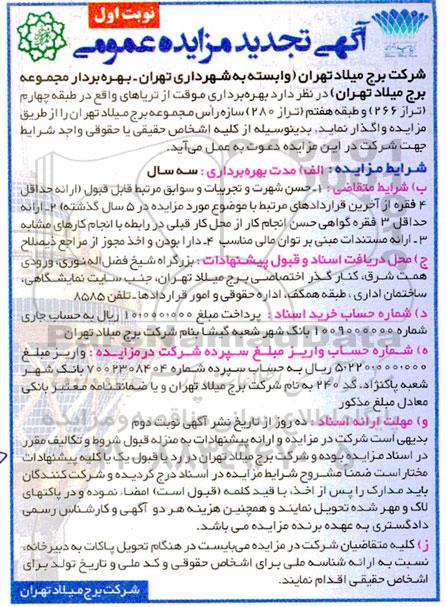 نوبت اول
آگهی تجدید مزایده عمومی
شرکت برج میلاد تهران (وابسته به شهرداری تهران ـ بهره‌بردار مجموعه
برج میلاد تهران) در نظر دارد بهره‌برداری موقت از تریاهای واقع در طبقه چهارم
(تراز ۲۶۶) و طبقه هفتم (تراز ۲۸۰) سازه رأس مجموعه برج میلاد تهران را از طریق
مزایده واگذار نماید. بدینوسیله از کلیه اشخاص حقیقی یا حقوقی واجد شرایط
جهت شرکت در این مزایده دعوت به عمل می‌آید.
شرایط مزایده: الف) مدت بهره‌برداری: سه سال
ب) شرایط متقاضی: ۱ـ حسن شهرت و تجربیات و سوابق مرتبط قابل قبول (ارائه حداقل
۴ فقره از آخرین قراردادهای مرتبط با موضوع مورد مزایده در ۵ سال گذشته) ۲ـ ارائه
حداقل ۳ فقره گواهی حسن انجام کار از محل کار قبلی در رابطه با انجام کارهای مشابه
۳ـ ارائه مستندات مبنی بر توان مالی مناسب ۴ـ دارا بودن و اخذ مجوز از مراجع ذیصلاح
ج) محل دریافت اسناد و قبول پیشنهادات: بزرگراه شیخ فضل‌اله نوری، ورودی
سمت شرق، کنار گذر اختصاصی برج میلاد تهران، جنب سایت نمایشگاهی،
ساختمان اداری، طبقه همکف، اداره حقوقی و امور قراردادها ـ تلفن ۸۵۸۵
د) شماره حساب خرید اسناد: پرداخت مبلغ ۱/۰۰۰/۰۰۰ ریال به حساب جاری
شماره ۱۰۰۹۰۰۰۰۰۰ بانک شهر شعبه گیشا بنام شرکت برج میلاد تهران
ه) شماره حساب واریز مبلغ سپرده شرکت در مزایده: واریز مبلغ
ریال به حساب سپرده شماره ۷۰۰۲۳۰۸۴۰۴ بانک شهر
شعبه پاکنژاد، کد ۲۴۰ به نام شرکت برج میلاد تهران و یا ضمانتنامه معتبر بانکی
معادل مبلغ مذکور
و) مهلت ارائه اسناد: ده روز از تاریخ نشر آگهی نوبت دوم
بدیهی است شرکت در مزایده و ارائه پیشنهادات به منزله قبول شروط و تکالیف مقرر
در اسناد مزایده بوده و شرکت برج میلاد تهران در رد یا قبول یک یا کلیه پیشنهادات
مختار است ضمناً مشروح شرایط مزایده در اسناد درج گردیده و شرکت کنندگان
باید مدارک را پس از اخذ، با قید کلمه (قبول است) امضاء نموده و در پاکتهای
لاک و مهر شده تحویل نمایند و همچنین هزینه هر دو آگهی و کارشناس رسمی
دادگستری به عهده برنده مزایده می باشد.
ز) کلیه متقاضیان شرکت در مزایده می‌بایست در هنگام تحویل پاکات به دبیرخانه،
نسبت به ارائه شناسه ملی برای اشخاص حقوقی و کد ملی و تاریخ تولد برای
اشخاص حقیقی اقدام نمایند.
شرکت برج میلاد تهران